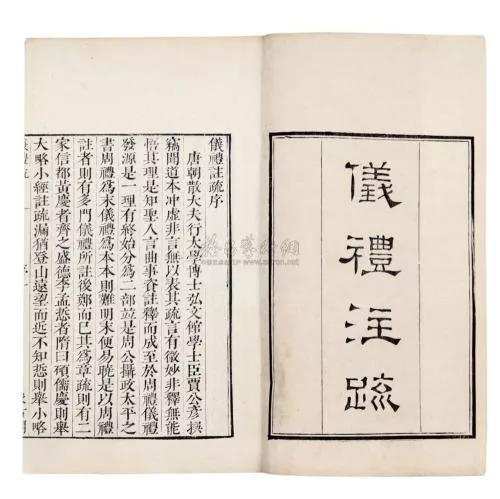 儀禮注疏
儀禮註疏序
唐朝散大夫行太學博士弘文館學士臣賈公彥撰
竊聞道本冲虛非言無以表其疏言有微妙非釋無能
悟其理是知聖人言曲事資註釋而成至於周禮儀禮
發源是一理有終始分爲二部竝是周公攝政太平之
書周禮爲末儀禮爲本本則難明末便易曉是以周禮
註者則有多門儀禮所註後鄭而已其爲章疏則有二
家信都黃慶者齊之盛德李孟悊者隋曰碩儒慶則舉
大略小經註疏漏猶登山遠望而近不知悊則舉小略